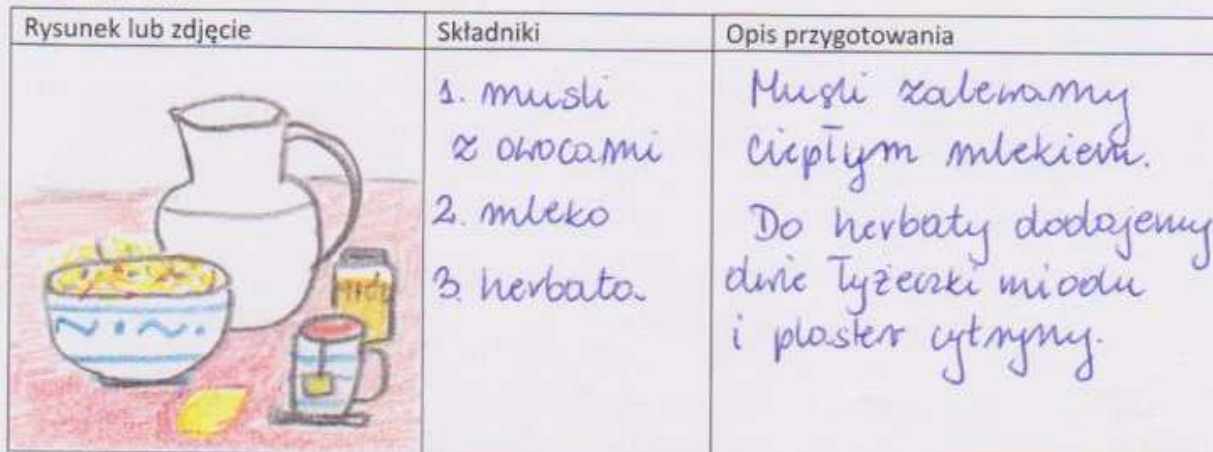 Rysunek lub zdjęcie
Składniki
Opis przygotowania
1. musli
z owocami
2. mleko
3. herbata
Musli zalewamy
ciepłym mlekiem.
Do herbaty dodajemy
dwie łyżeczki miodu
i plaster cytryny.